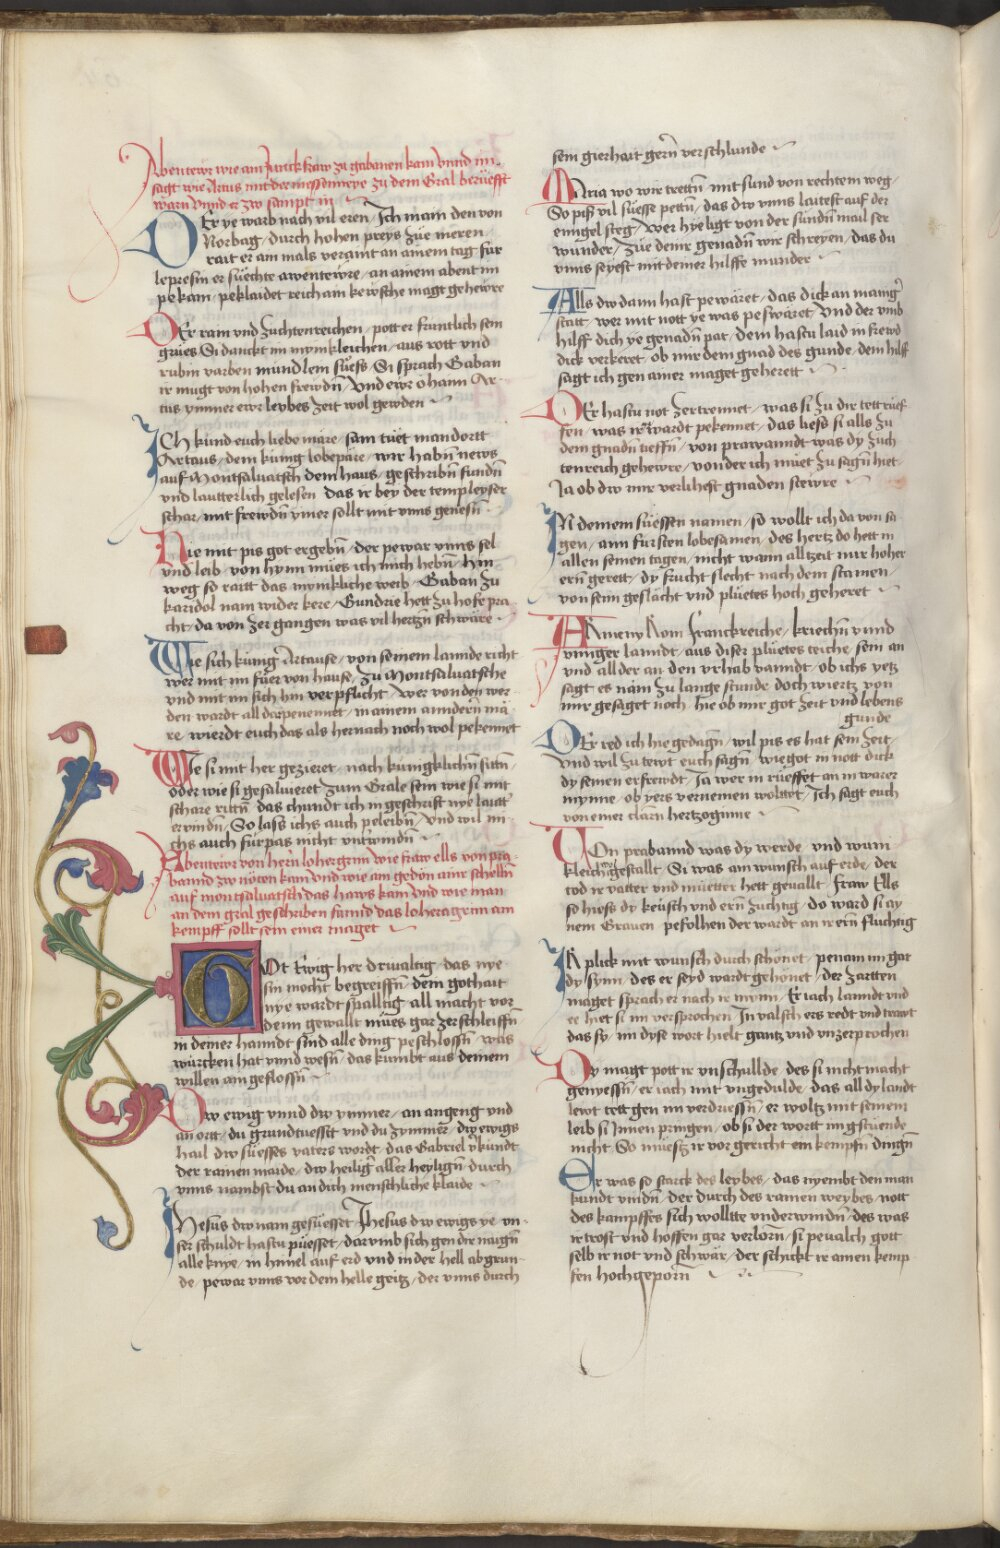 Abentewr wie ain Junckfraw zu gabanen kam vnnd im
sagt wie Artus mit der massenneye zu dem Gral berüefft
warn vnnd er zw sampt in
DEr ye warb nach vil eren / Ich main den von
Norbag / durch hohen preys züe meren
rait er am mals veraint an ainem tag / für
lepresin er süechte awentewre / an ainem abent im
pekam / peklaidet reich ain kewsche magt gehewre
DEr rain vnd zuchtenreichen / pott er fruntlich sein
grües Si danckt im mynikleichen / aus rott vnd
rubin varben mundlein süess Si sprach Gaban
ir mugt von hohen frewdn̄ / Vnd ewr öhaim Ar
tus ymmer ewr leybes zeit wol gewden
ICh kund euch liebe märe / sam tüet mandortt
Artaus / dem künig lobepäre / wir habn̄ news
auf Montsaluatsch dem haus / geschribn̄ fundn̄
vnd lautterlich gelesen das ir bey der templeyser
schar / mit frewdn̄ ymer sollt mit vnns genesn̄
HIe mit pis got ergebn̄ / der pewar vnns sel
vnd leib / von hynn mües ich mich hebn̄ / hin
weg so raitt das mynikliche weib / Gaban zu
karidol nam wider kere / Gundrie hett zu hofe pra
cht / da von zergangen was vil hertzn̄ schwäre
WIe sich künig Artause / von seinem lannde richt
wer mit im füer von hause / zu Montsaluatsche
vnd mit im sich hin verpflicht / wer von den wer
den wardt all da gepennet / in ainem anndern mä
re / wierdt euch das als hernach noch wol pekennet
WIe si mit her gezieret / nach kunigklichn̄ sittn̄
oder wie si gesalueret zum Grale sein wie si mit
schare rittn̄ / das chundt ich in geschrift nye lautt
ervindn̄ / So lass ichs auch peleibn̄ / Vnd wil mi
chs auch fürpas nicht vntwindn̄
Abentewr von hern̄ lohergrim wie fraw ells von pra
bannd zw nöten kam vnd wie am gedön ainr schelln̄
auf montsaluatsch das haws kam vnd wie man
an dem gral geschriben fannd das lohera grim am
kempff sollt sein einer maget
GOt Ewig her drivaltig / das nye
sin mocht begreiffn̄ / dem gothait
nye wardt spalltig / all macht vor
deim gewallt mües gar zerschleiffn̄
in deiner hanndt sind alle ding peschlossn̄ / was
würcken hat vnnd wesn̄ das kumbt aus deinem
willen ain geflossn̄
DW ewig vnnd dw ymmer / an angeng vnd
an ort / du grundtuesstt vnd du zymmer / dw ewigs
hail dw süesses vaters wordt / das Gabriel v̓kundt
der rainen maide / dw heilig̓ aller heylign̄ / durch
vnns nambst du an dich menschliche klaide
IHesus dw nam gesüesset / Jhesus dw ewigs ye / vn
ser schuldt hastu püesset / darumb sich gen dir naign̄
alle knye / in himel auf erd vnd in der hell abgrun
de / pewar vnns vor dem helle geitz / der vnns durch
sein gierhait gern̄ verschlunde
MAria wo wir trettn̄ / mit sund von rechtem weg /
So piss vil süesse pettn̄ / das dw vnns laitest auf der
ennigel steg / wer hyeligt von der sündn̄ mail ser
wunder / züe deinr genadn̄ wir schreyen / das du
vnns seyest mit deiner hilffe munder
ALls dw dann hast pewäret / das dick an manig̓
statt / wer mit nott ye was peswäret / vnd der vmb
hilff dich ye genadn̄ pat / dem hastu laid in frewd
dick verkeret / ob mir dem gnad des gunde / dein hilff
sagt ich gen ainer maget geherett
DEr hastu not zertrennet / was si zu dir tett rüef
fen / was ir wardt pekennet / das liess si alls zu
dem gnadn̄ tieffn̄ / von prawanndt was dy zuch
tenreich gehewre / von der ich müet zu sagn̄ hiet
Ja ob dw mir verlihest gnaden stewre
IN deinem süessen namen / so wollt ich da von sa
gen / ann fürsten lobesamen / des hertz do hett in
allen seinen tagen / nicht wann allzeit mir hoher
ern̄ gerett / dy frucht slecht nach dem stamen /
von seim geslächt vnd plüetes hoch geheret
ARmeny Rom franckreiche / kriechn̄ vnnd
vnnger lanndt / aus diser plüetes teiche / sein an
vnd all der an den vrhab vanndt / ob ichs yetz
sagt es näm zu lange stunde / doch wiertz von
mir gesaget noch / hie ob mir got zeit vnd lebens
gunde
DEr red ich hie gedagn̄ / wil pis es hat sein zeit /
Vnd wil zu tewt euch sagn̄ / wie got in nott dick
dy seinen erfrewdt / Ja wer in rüeffet an in warer
mynne / ob yers vernemen wollttt / Ich sagt euch
von einer clarn̄ hertzoginne
VOn prabannd was dy werde / vnd wun
kleich gestallt / Si was ain wunsch auf erde / der
tod ir vatter vnd müetter hett geuallt / fraw Ells
so hiess dy keusch vnd ern̄ züchtig / do ward si ay
nem Grauen pefolhen der wardt an ir ern̄ flüchtig
IR plick mit wunsch durch schönet / penam im gar
dy synn / des er seyd wardt gehönet / der zartten
maget sprach er nach ir mynn / Er iach lanndt vnd
ee hiet si im versprochen / In valsch ers redt vnd trawt
das sy im dyse wort hielt gantz vnd vnzerprochen
DY magt pott ir vnschullde / des si nicht macht
genyessn̄ / er iach mit vngedulde / das all dy landt
lewt tett gen im verdriessn̄ / er woltz mit seinem
leib si Innen pringen / ob si der wortt im gstuende
nicht So müest ir vor gericht ein kempfn̄ dingn̄
ER was so starck des leybes / das nyembt den man
kundt vindn̄ / der durch des rainen weybes / nott
des kampffes sich wolltte vnderwindn̄ / des was
ir trost vnd hoffen gar verlorn̄ / si peualch gott
selb ir not vnd schwär / der schickt ir ainen kemp
fen hochgeporn̄